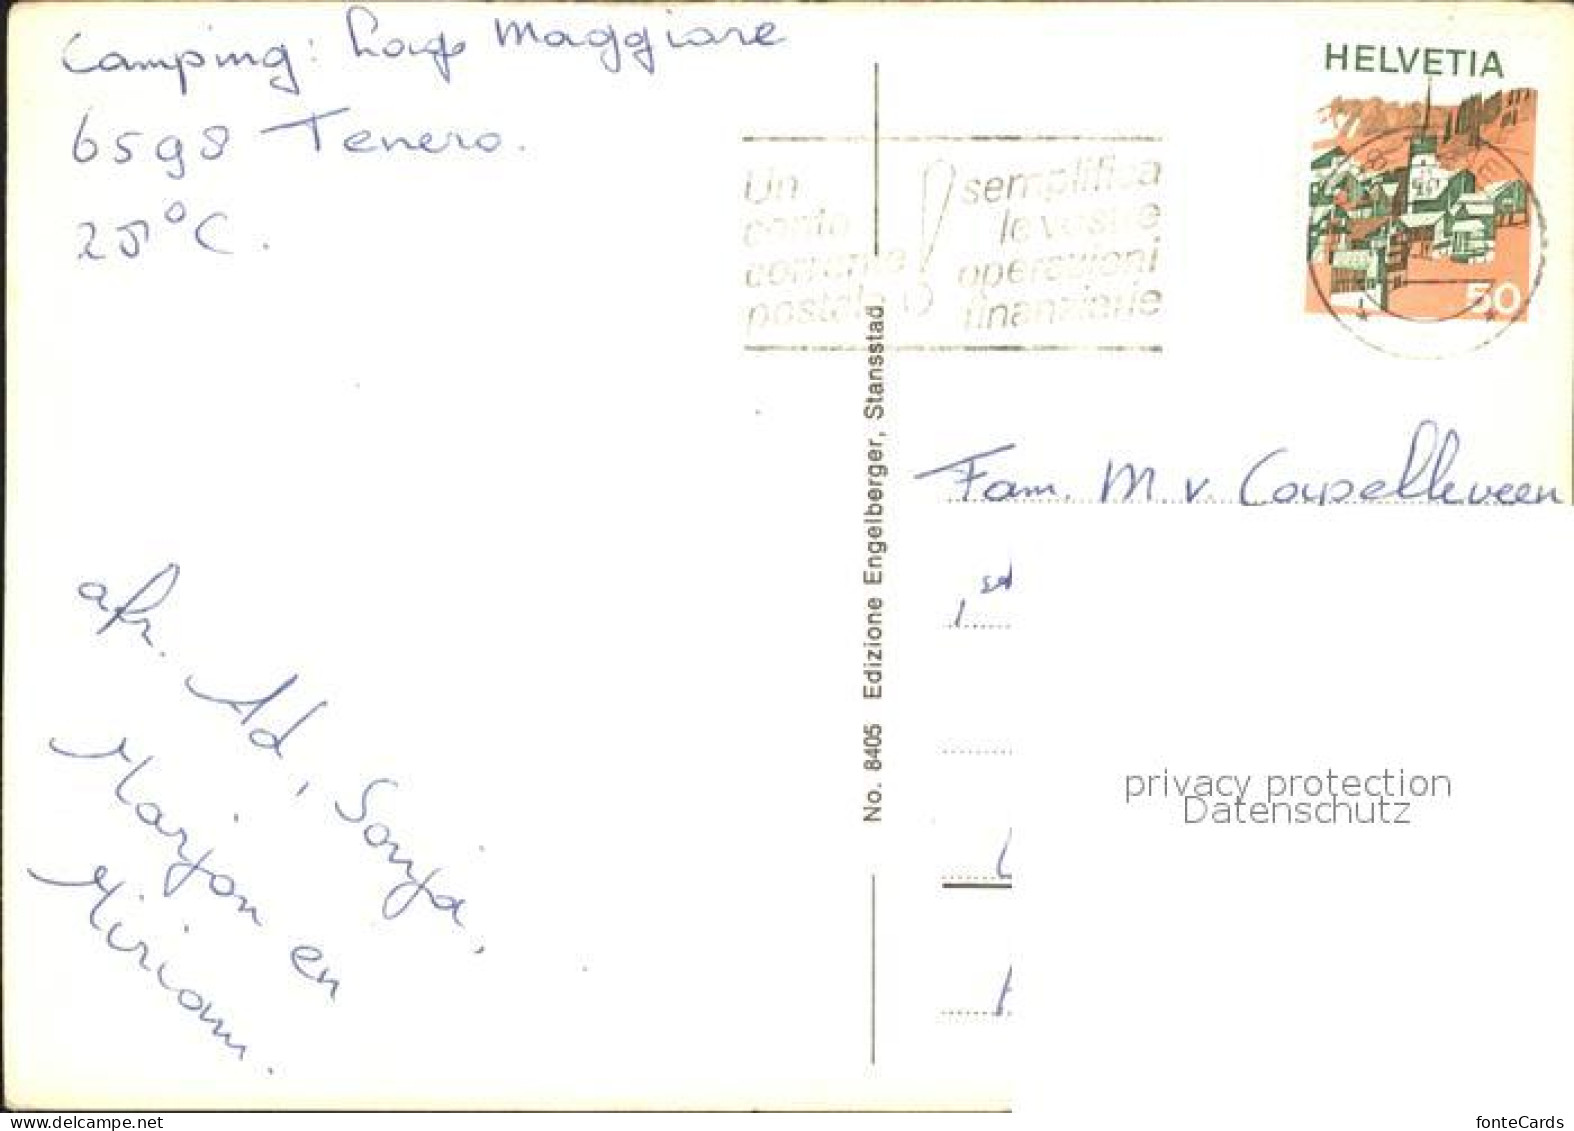 Camping: Lago Maggiore
6598 Tenero.
25°C.
afz. Ad, Sonja,
Marjon en
Miriam.
No. 8405 Edizione Engelberger, Stansstad.
Un
conto
corrente
postale
semplifica
le vostre
operazioni
finanziarie
HELVETIA
50
Fam. M. v. Capelleveen
privacy protection
Datenschutz
delcampe.net
fonteCards